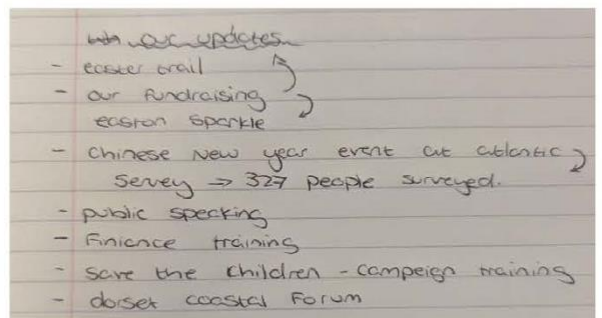 our updates
- easter trail
- our fundraising
easton sparkle
- Chinese New year event at atlantic
Servey → 327 people surveyed.
- public speaking
- Finiance training
- save the children - campeign training
- dorset coastal Forum